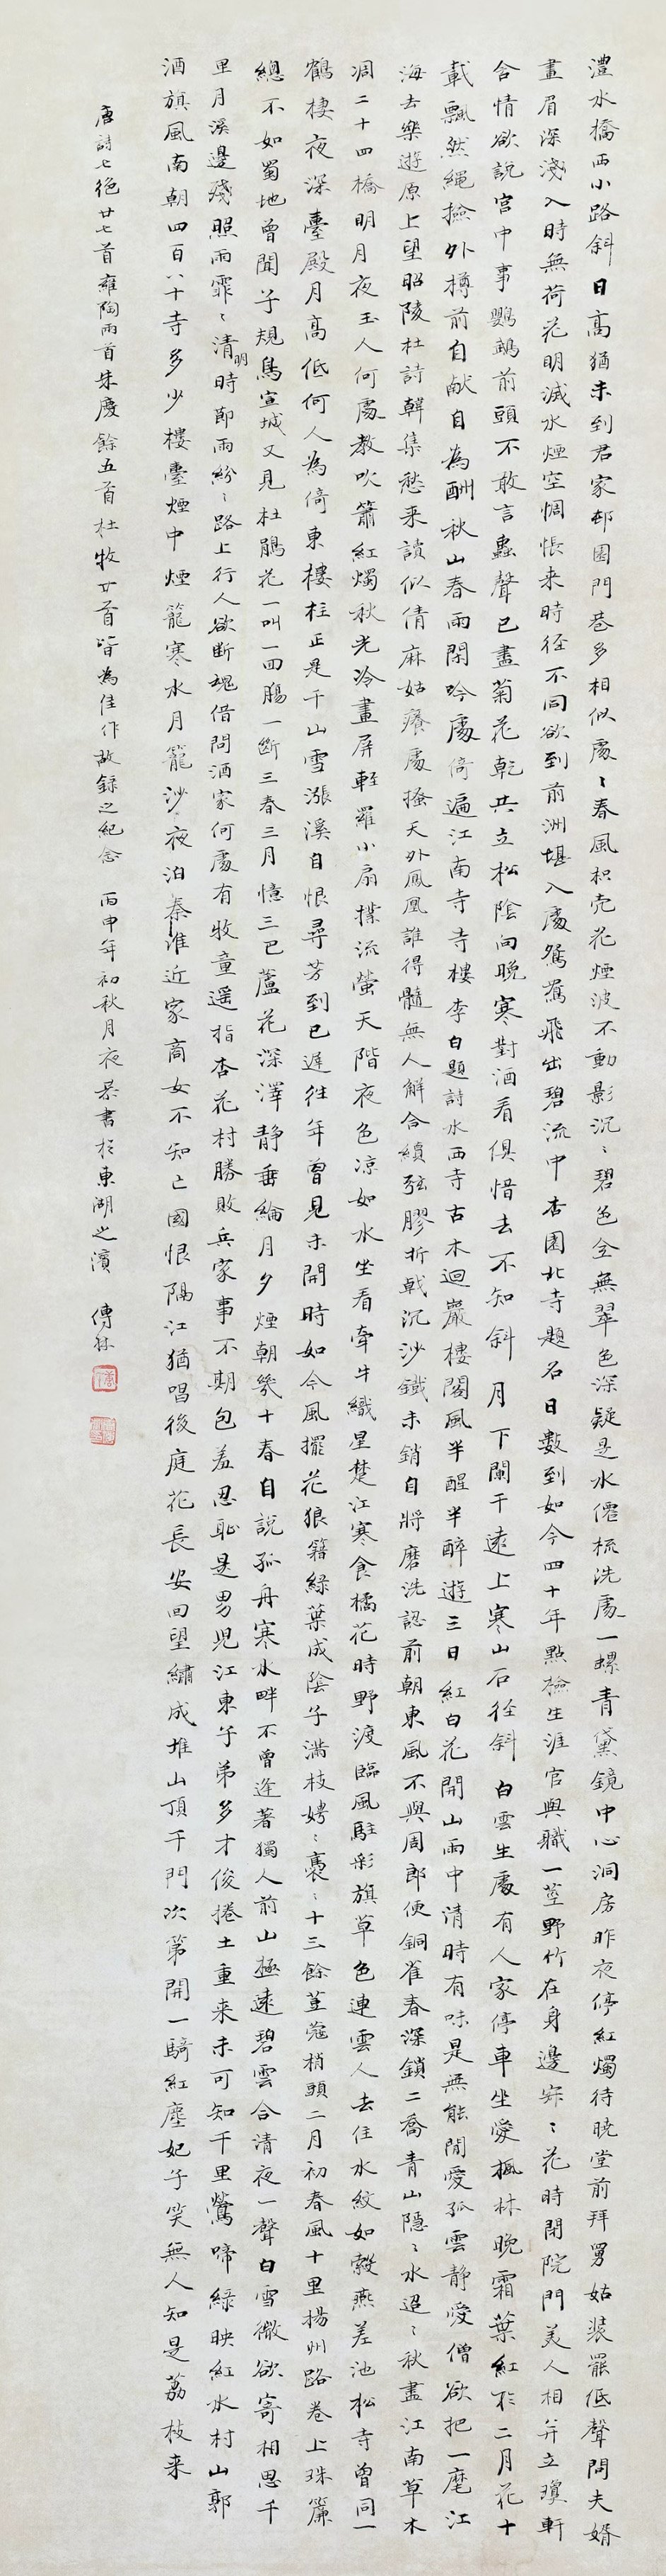 澧水橋西小路斜日高猶未到君家邨園門巷多相似處〻春風枳壳花煙波不動影沉〻碧色全無翠色深疑是水僊梳洗處一螺青黛鏡中心洞房昨夜停紅燭待曉堂前拜舅姑裝罷低聲問夫婿
畫眉深淺入時無荷花明滅水煙空惆悵来時徑不同欲到前洲堪入處鴛鴦飛出碧流中杏園北寺題名日數到如今四十年點檢生涯官與職一莖野竹在身邊寂〻花時閉院門美人相并立瓊軒
含情欲說宮中事鸚鵡前頭不敢言蟲聲已盡菊花乾共立松陰向晚寒對酒看俱惜去不知斜月下闌干遠上寒山石徑斜白雲生處有人家停車坐愛楓林晚霜葉紅於二月花十
載飄然繩撿外樽前自献自為酬秋山春雨閑吟處倚遍江南寺寺樓李白題詩水西寺古木迴巖樓閣風半醒半醉遊三日紅白花開山雨中清時有味是無能閒愛孤雲静愛僧欲把一麾江
海去樂遊原上望昭陵杜詩韓集愁来讀似倩麻姑癢處搔天外鳳凰誰得髓無人解合續弦膠折戟沉沙鐵未銷自將磨洗認前朝東風不與周郎便銅雀春深鎖二喬青山隱〻水迢〻秋盡江南草木
凋二十四橋明月夜玉人何處教吹簫紅燭秋光冷畫屏輕羅小扇撲流螢天階夜色凉如水坐看牽牛織星楚江寒食橘花時野渡臨風駐彩旗草色連雲人去住水紋如縠燕差池松寺曾同一
鶴棲夜深臺殿月高低何人為倚東樓柱正是千山雪漲溪自恨尋芳到已遲往年曾見未開時如今風擺花狼籍綠葉成陰子滿枝娉〻裊〻十三餘荳蔻梢頭二月初春風十里楊州路卷上珠簾
總不如蜀地曾聞子規鳥宣城又見杜鵑花一叫一回腸一斷三春三月憶三巴蘆花深澤静垂綸月夕煙朝幾十春自說孤舟寒水畔不曾逢著獨人前山極遠碧雲合清夜一聲白雪微欲寄相思千
里月溪邊殘照雨霏〻清明時節雨紛〻路上行人欲断魂借問酒家何處有牧童遥指杏花村勝敗兵家事不期包羞忍恥是男児江東子弟多才俊捲土重来未可知千里鶯啼綠映紅水村山郭
酒旗風南朝四百八十寺多少樓臺煙中煙籠寒水月籠沙夜泊秦淮近家商女不知亡國恨隔江猶唱後庭花長安回望繡成堆山頂千門次第開一騎紅塵妃子笑無人知是荔枝来
唐詩七絕廿七首雍陶兩首朱慶餘五首杜牧廿首皆為佳作故録之紀念 丙申年初秋月夜書於東湖之濱 傅林